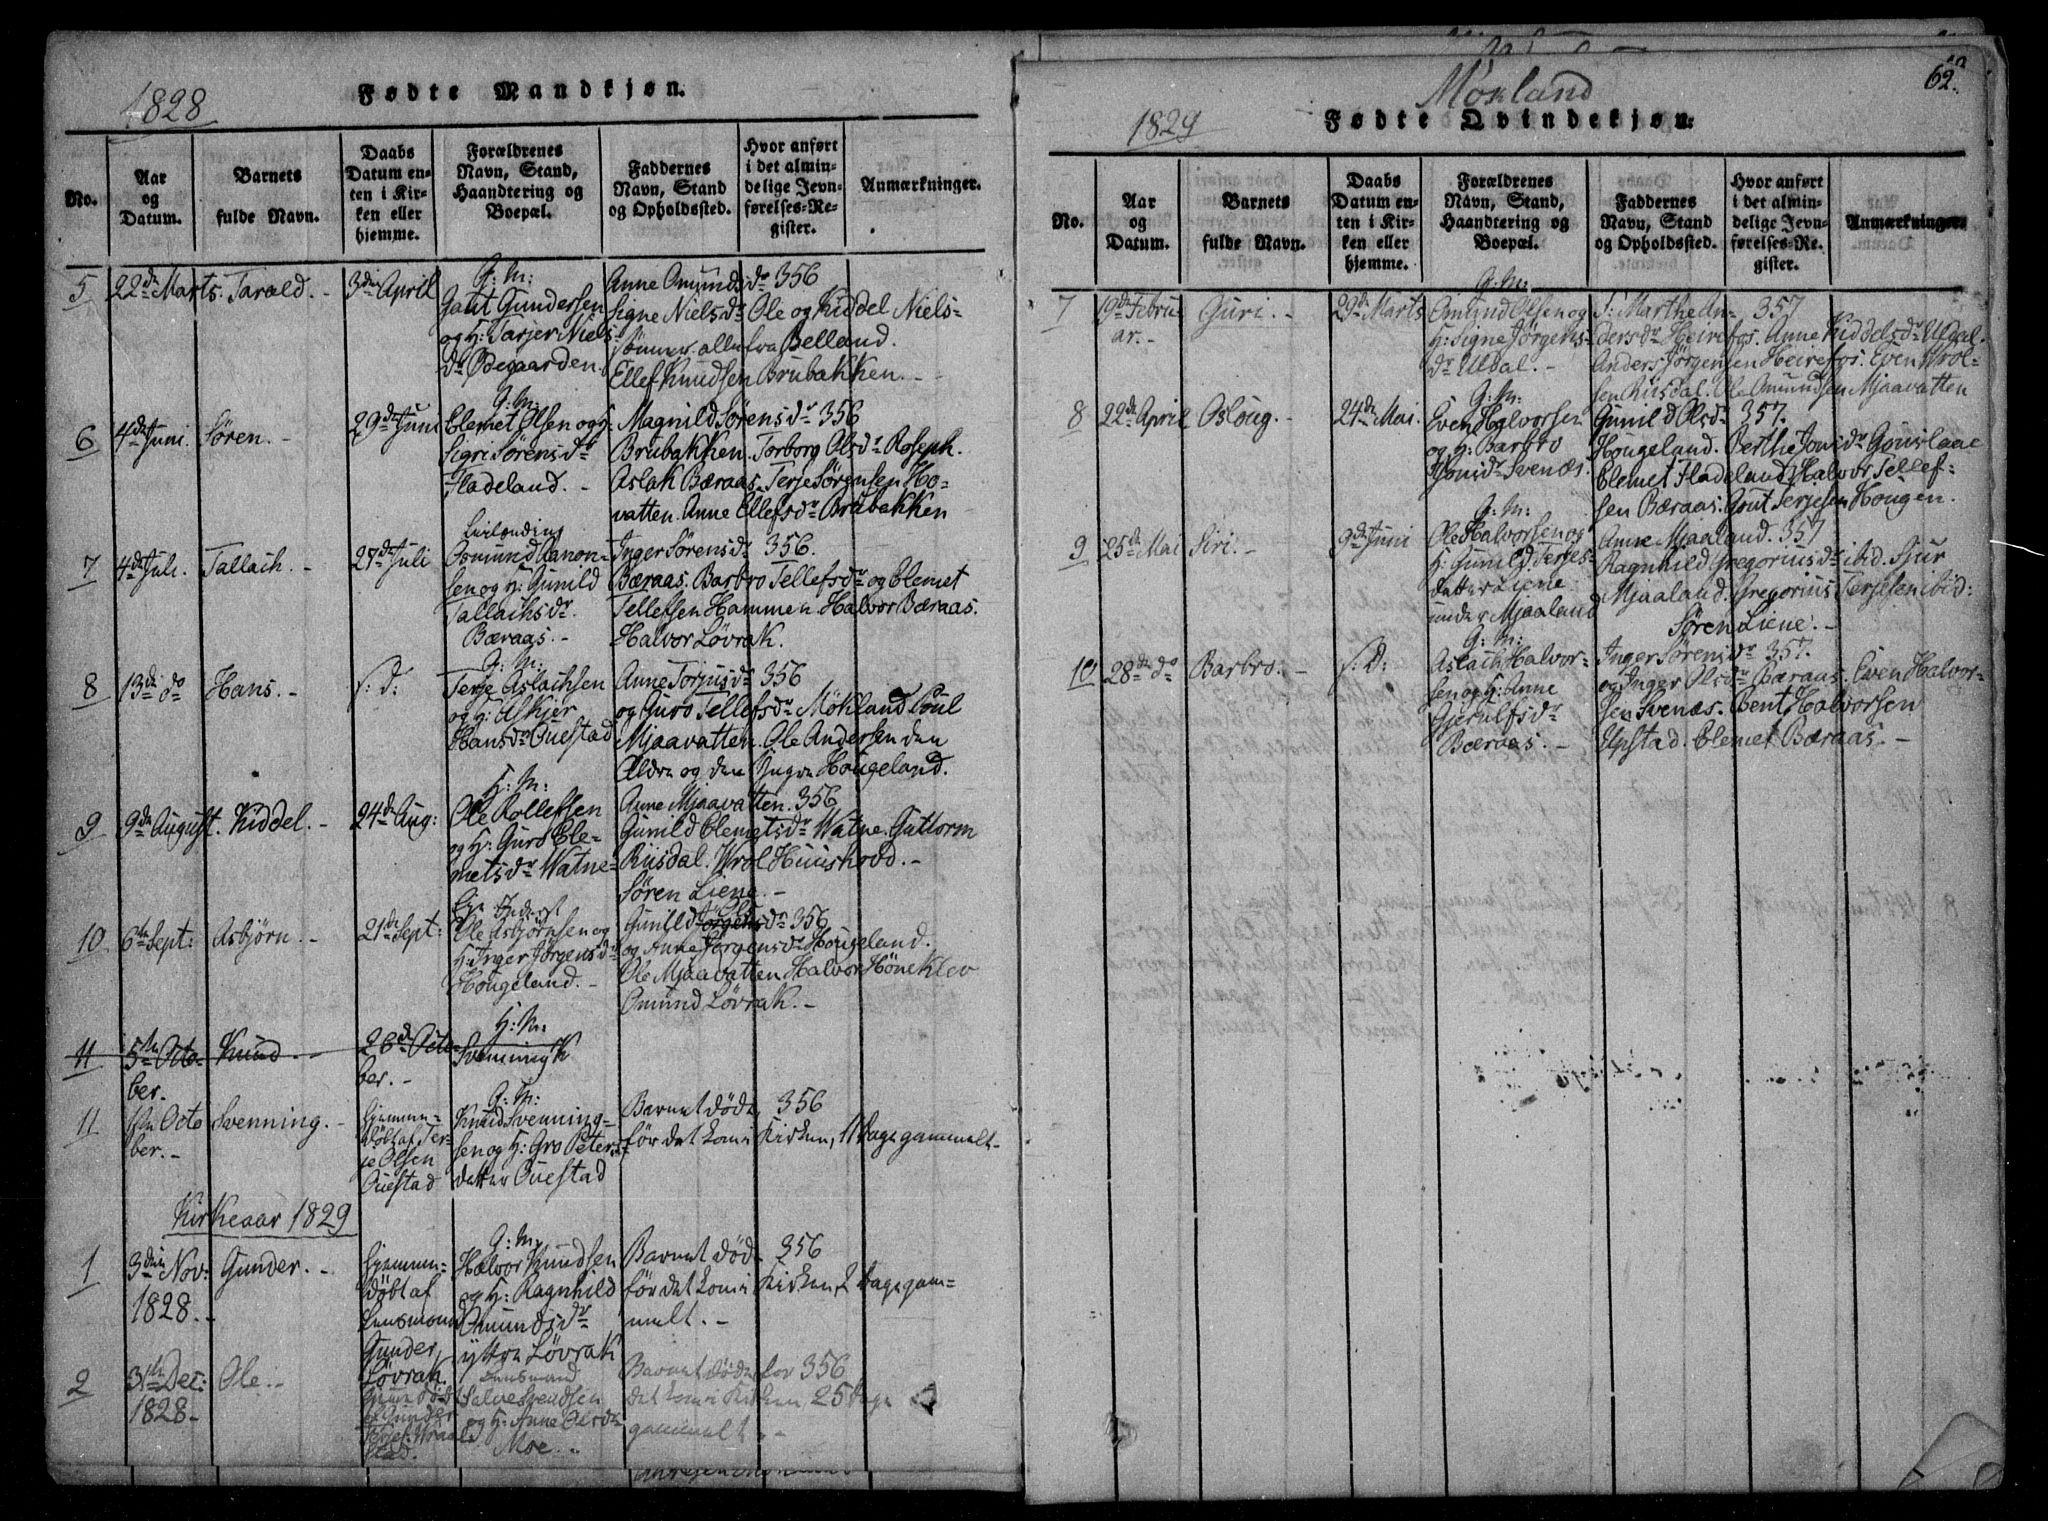 1828
Fødte Mandkjøn.
No.
Aar
og
Datum.
Barnets
fulde Navn.
Daabs
Datum en-
ten i Kir-
ken eller
hjemme.
Forældrenes
Navn, Stand,
Haandtering og
Boepæl.
Faddernes
Navn, Stand
og Opholdssted.
Hvor anført
i det almin-
delige Jevn-
førelses-Re-
gister.
Anmærkninger.
5 22de Marts. Tarald. 3de April
G: M:
Gaut Gundersen
og H: Tarjer Niels-
dr Ødegaarden.
Anne Omundsdr 356
Signe Nielsdr Ole og Kiddel Niels-
sønner alle fra Belland.
Ellef Knudsen Brubakken.
6 4de Juni. Søren. 29de Juni
G: M:
Clemet Olsen og H:
Sigri Sørensdr
Fladeland.
Magnild Sørensdr 356
Brubakken. Torborg Olsdr Roseph.
Aslak Bæraas. Terje Sørensen Ho-
vatten. Anne Ellefsdr Brubakken
7 4de Juli. Tallach. 27de Juli
Leilending
Osmund Aanon-
sen og H: Gunild
Tallachsdr
Bæraas.
Inger Sørensdr 356.
Bæraas. Barbro Tellefsdr og Clemet
Tellefsen Hammen Halvor Bæraas.
Halvor Løvrak.
8 13de do Hans. s: d:
G: M:
Terje Aslachsen
og H: Askjer
Hansdr Ouestad
Anne Torjusdr 356
og Guro Tellefsdr Mökland Poul
Mjaavatten. Ole Andersen den
Ældre og den Yngre Hougeland.
9 9de August. Kiddel. 24de Aug:
H: M:
Ole Rollefsen
og H: Guro Cle-
metsdr Watne
Anne Mjaavatten. 356
Gunild Clemetsdr Watne. Guttorm
Riisdal. Wrol Huushovd.
Søren Liene.
10 6te Sept: Asbjørn. 21de Sept:
Ole Asbjørnsen og
H: Inger Jørgensdr
Hougeland.
Ols
Gunild Jørgensdr 356
og Anne Jørgensdr Hougeland.
Ole Mjaavatten Halvor Høneklev
Omund Løvrak.
11 5te Octo-
ber. Knud. 26de Octo-
ber.
H: M:
Svenning K
11 1ste Octo
ber. Svenning. Hjemme-
døbt af Ter-
je Olsen
Ouestad
G: M:
Knud Svenning-
sen og H: Gro Peters-
datter Ouestad
Barnet døde 356
før det kom i Kirken, 11 Dage gammelt.
Kirkeaar 1829
1 3die Nov:
1828. Gunder. Hjemme-
døbt af
Lensmand
Gunder
Løvrak.
G: M:
Halvor Knudsen
og H: Ragnhild
Omundsdr
ytre Løvrak
Barnet død 356
før det kom i Kirken 2 Dage gam-
melt.
2 31te Dec:
1828. Ole. Hjemmedøbt
af Gunder

stad.
Lensmand
Salve Svendsen
og H: Anne Olsdr
Moe.
Barnet døde for 356
det kom i Kirken 25 Dage
gammelt
Mökland
62.
1829
Fødte Qvindekjøn.
No.
Aar
og
Datum.
Barnets
fulde Navn.
Daabs
Datum en-
ten i Kir-
ken eller
hjemme.
Forældrenes
Navn, Stand,
Haandtering og
Boepæl.
Faddernes
Navn, Stand
og Opholdssted.
Hvor anført
i det almin-
delige Jevn-
førelses-Re-
gister.
Anmærkninger
7 19de Febru
ar. Guri. 29de Marts
G: M:
Omund Olsen og
H: Signe Jørgens-
dr Uldal.
F: Marthe An- 357
dersdr Heirefos. Anne Kiddelsdr Uldal.
Anders Jørgensen Heirefos. Even Wrol-
sen Riisdal. Ole Omundsen Mjaavatten
8 22de April Osloug. 24de Mai.
G: M:
Even Halvorsen
og H: Barbro
Jonsdr Svenæs.
Gunild Olsdr 357.
Hougeland. Berthe Jonsdr Gouslaae
Clemet Fladeland Halvor Tellef-
sen Bæraas. Gout Terjesen Hougen.
9 25de Mai Siri. 9de Juni
G: M:
Ole Halvorsen og
H: Gunild Terjes-
datter Liene
under Mjaaland
Anne Mjaaland. 357
Ragnhild Gregoriusdr ibid. Sjur
Mjaaland. Gregorius Terjesen ibid:
Søren Liene.
10 28de do Barbro. s: d:
G: M:
Aslach Halvor-
sen og H: Anne
Gjerulfsdr
Bæraas.
Inger Sørensdr 357.
og Inger Olsdr Bæraas. Even Halvor-
sen Svenæs. Bent Halvorsen
Upstad. Clemet Bæraas.